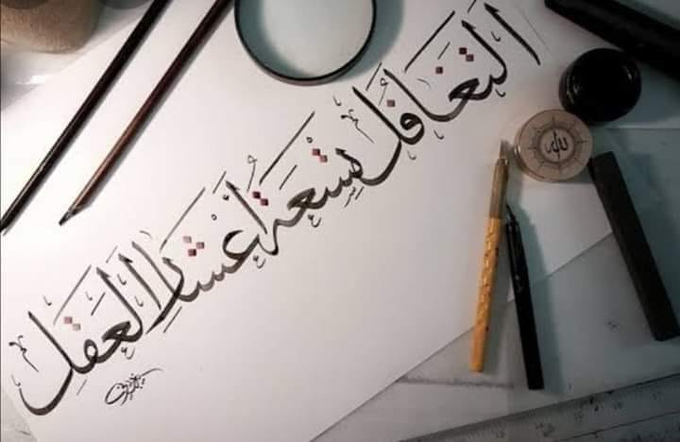 التغافل تسعة أعشار العقل
الله